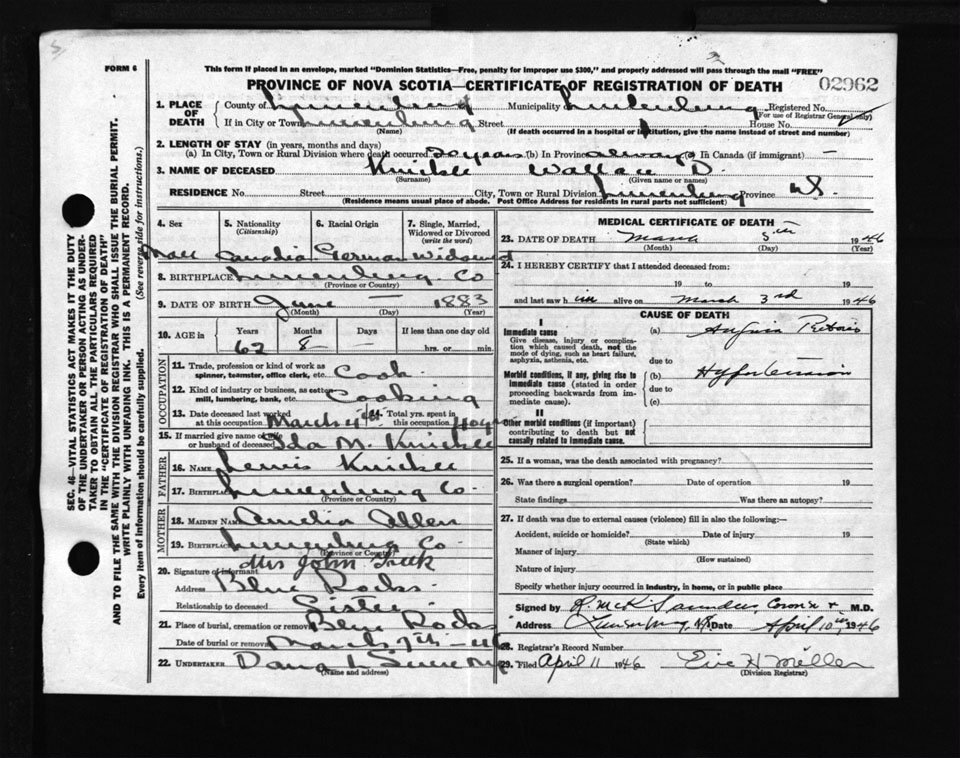 FORM 6
This form if placed in an envelope, marked "Dominion Statistics—Free, penalty for improper use $300," and properly addressed will pass through the mail "FREE"
PROVINCE OF NOVA SCOTIA—CERTIFICATE OF REGISTRATION OF DEATH
02962
1. PLACE OF DEATH County of Lunenburg Municipality Lunenburg Registered No.
(For use of Registrar General only)
If in City or Town Lunenburg Street House No.
(Name) (If death occurred in a hospital or institution, give the name instead of street and number)
2. LENGTH OF STAY (in years, months and days)
(a) In City, Town or Rural Division where death occurred 20 years (b) In Province always (c) In Canada (if immigrant) —
3. NAME OF DECEASED Knickle Wallace D.
(Surname) (Given name or names)
RESIDENCE No. Street City, Town or Rural Division Lunenburg Province N.S.
(Residence means usual place of abode. Post Office Address for residents in rural parts not sufficient)
SEC. 46—VITAL STATISTICS ACT MAKES IT THE DUTY
OF THE UNDERTAKER OR PERSON ACTING AS UNDER-
TAKER TO OBTAIN ALL THE PARTICULARS REQUIRED
IN THE "CERTIFICATE OF REGISTRATION OF DEATH"
AND TO FILE THE SAME WITH THE DIVISION REGISTRAR WHO SHALL ISSUE THE BURIAL PERMIT.
WRITE PLAINLY WITH UNFADING INK. THIS IS A PERMANENT RECORD.
Every item of information should be carefully supplied. (See reverse side for instructions.)
4. Sex
5. Nationality
(Citizenship)
6. Racial Origin
7. Single, Married,
Widowed or Divorced
(write the word)
Male Canadia German Widowed
8. BIRTHPLACE Lunenburg Co
(Province or County)
9. DATE OF BIRTH June — 1883
(Month) (Day) (Year)
10. AGE in Years Months Days If less than one day old
62 8 — hrs. or min.
OCCUPATION
11. Trade, profession or kind of work as
spinner, teamster, office clerk, etc. Cook
12. Kind of industry or business, as cotton
mill, lumbering, bank, etc. Cooking
13. Date deceased last worked
at this occupation March 4th 14. Total yrs. spent in
this occupation 40 yrs
15. If married give name of wife
or husband of deceased Ida M. Knickle
FATHER
16. NAME Lewis Knickle
17. BIRTHPLACE Lunenburg Co.
(Province or Country)
MOTHER
18. MAIDEN NAME Amelia Allen
19. BIRTHPLACE Lunenburg Co
(Province or Country)
20. Signature of informant Mrs John
Address Blue Rocks
Relationship to deceased Sister
21. Place of burial, cremation or removal Blue Rocks
Date of burial or removal March 7th - 46
22. UNDERTAKER
(Name and address)
MEDICAL CERTIFICATE OF DEATH
23. DATE OF DEATH March 5th 1946
(Month) (Day) (Year)
24. I HEREBY CERTIFY that I attended deceased from:
19 to 19
and last saw h im alive on March 3rd 1946
CAUSE OF DEATH
I
Immediate cause
Give disease, injury or complica-
tion which caused death, not the
mode of dying, such as heart failure,
asphyxia, asthenia, etc.
(a) Angina Pectoris
due to
Morbid conditions, if any, giving rise to
immediate cause (stated in order
proceeding backwards from im-
mediate cause).
(b) Hypertension
due to
(c)
II
Other morbid conditions (if important)
contributing to death but not
causally related to immediate cause.
25. If a woman, was the death associated with pregnancy?
26. Was there a surgical operation? Date of operation 19
State findings Was there an autopsy?
27. If death was due to external causes (violence) fill in also the following:—
Accident, suicide or homicide? Date of injury 19
(State which)
Manner of injury
(How sustained)
Nature of injury
Specify whether injury occurred in industry, in home, or in public place
Signed by R. McK. Saunders, Coroner M.D.
Address Lunenburg, N.S. Date April 10th, 1946
28. Registrar's Record Number
29. Filed April 11 1946 H Miller
(Division Registrar)